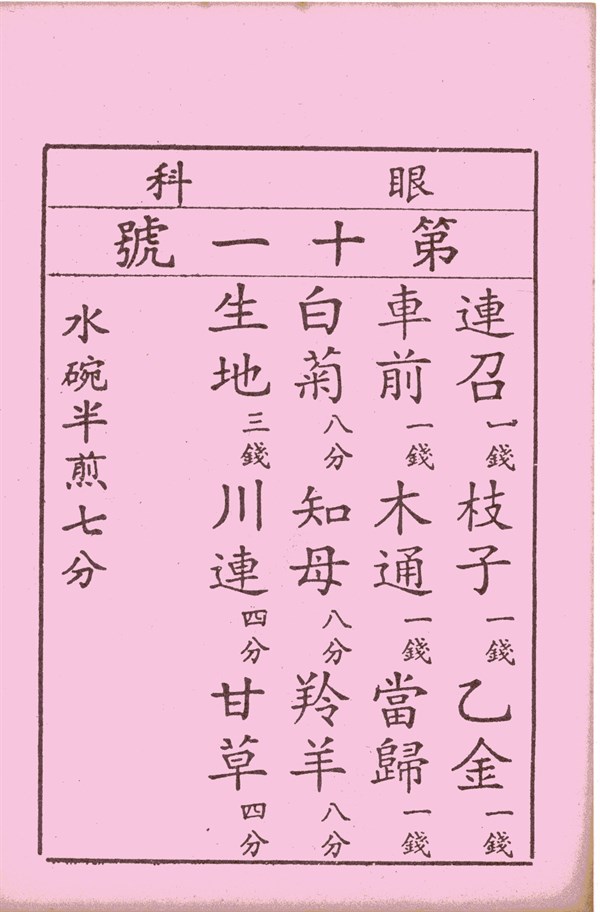 眼科
第十一號
連召一錢枝子一錢乙金一錢
車前一錢木通一錢當歸一錢
白菊八分知母八分羚羊八分
生地三錢川連四分甘草四分
水碗半煎七分